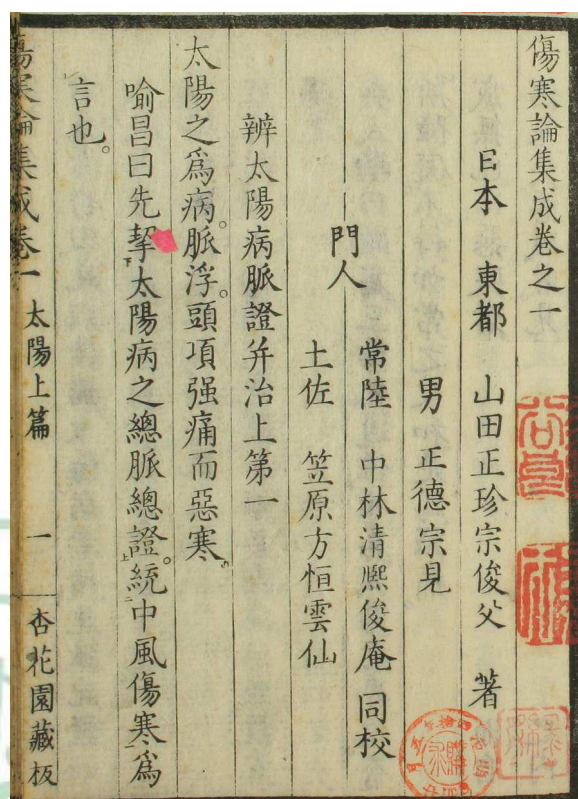 傷寒論集成卷之一
日本　東都　山田正珍宗俊父　著
男　正德宗見
門人
常陸　中林淸凞俊庵　同校
土佐　笠原方恒雲仙
辨太陽病脈證并治上第一
太陽之爲病。脈浮。頭項强痛而惡寒。
喻昌曰先挈下太陽病之總脈總證。統中風傷寒爲上レ
言也。
傷寒論集成卷一　太陽上篇　一　杏花園藏板